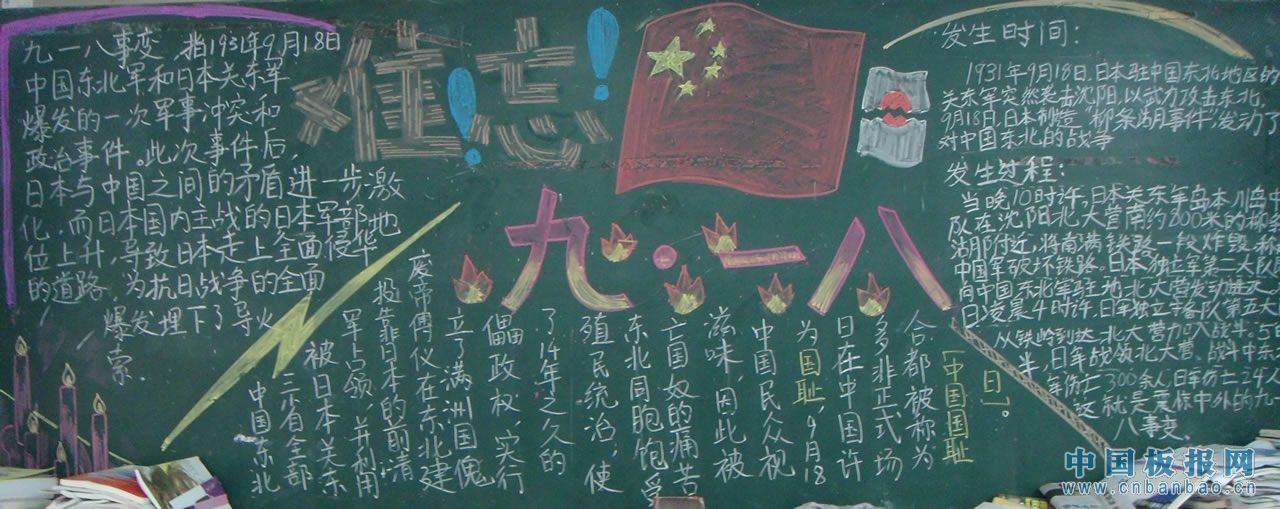 九一八事变 指1931年9月18日
中国东北军和日本关东军
爆发的一次军事冲突和
政治事件。此次事件后,
日本与中国之间的矛盾进一步激
化,而日本国内主战的日本军部地
位上升,导致日本走上全面侵华
的道路,为抗日战争的全面
爆发埋下了导火
索.
难!忘!
九·一八
中国东北
三省全部
被日本关东
军占领,并利用
投靠日本的前清
废帝溥仪在东北建
立了满洲国傀
儡政权,实行
了14年之久的
殖民统治,使
东北同胞饱受
亡国奴的痛苦
滋味,因此被
中国民众视
为国耻,9月18
日在中国许
多非正式场
合都被称为
“中国国耻
日”。
发生时间:
1931年9月18日.日本驻中国东北地区的
关东军突然袭击沈阳,以武力攻击东北,
9月18日,日本制造“柳条湖事件”发动了
对中国东北的战争
发生过程:
当晚10时许,日本关东军岛本川岛中
队在沈阳北大营南约800米的柳条
湖附近,将南满铁路一段炸毁,称
中国军破坏铁路。日本独立军第二大队
向中国东北军驻地北大营发动进攻,
日凌晨4时许,日军独立守备队第五大
从铁岭到达北大营加入战斗.5时
半,日军战领北大营、战斗中东
军伤亡300余人,日军伤亡24人
这就是震惊中外的九一
八事变。
中国板报网
www.cnbanbao.cn